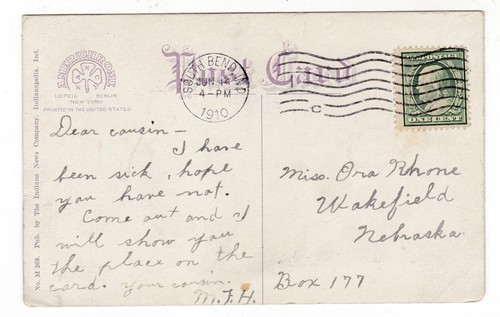 Post Card
AMERICHROME
LEIPZIG BERLIN
NEW YORK
PRINTED IN THE UNITED STATES
SOUTH BEND, IND.
JUN 14
4-PM
1910
C
ONE CENT
Dear cousin-
I have
been sick, hope
you have not.
Come out and I
will show you
the place on the
card. your cousin.
M.F.H.
Miss. Ora Rhone
Wakefield
Nebraska.
Box 177
No. M 308. Pub. by The Indiana News Company, Indianapolis, Ind.